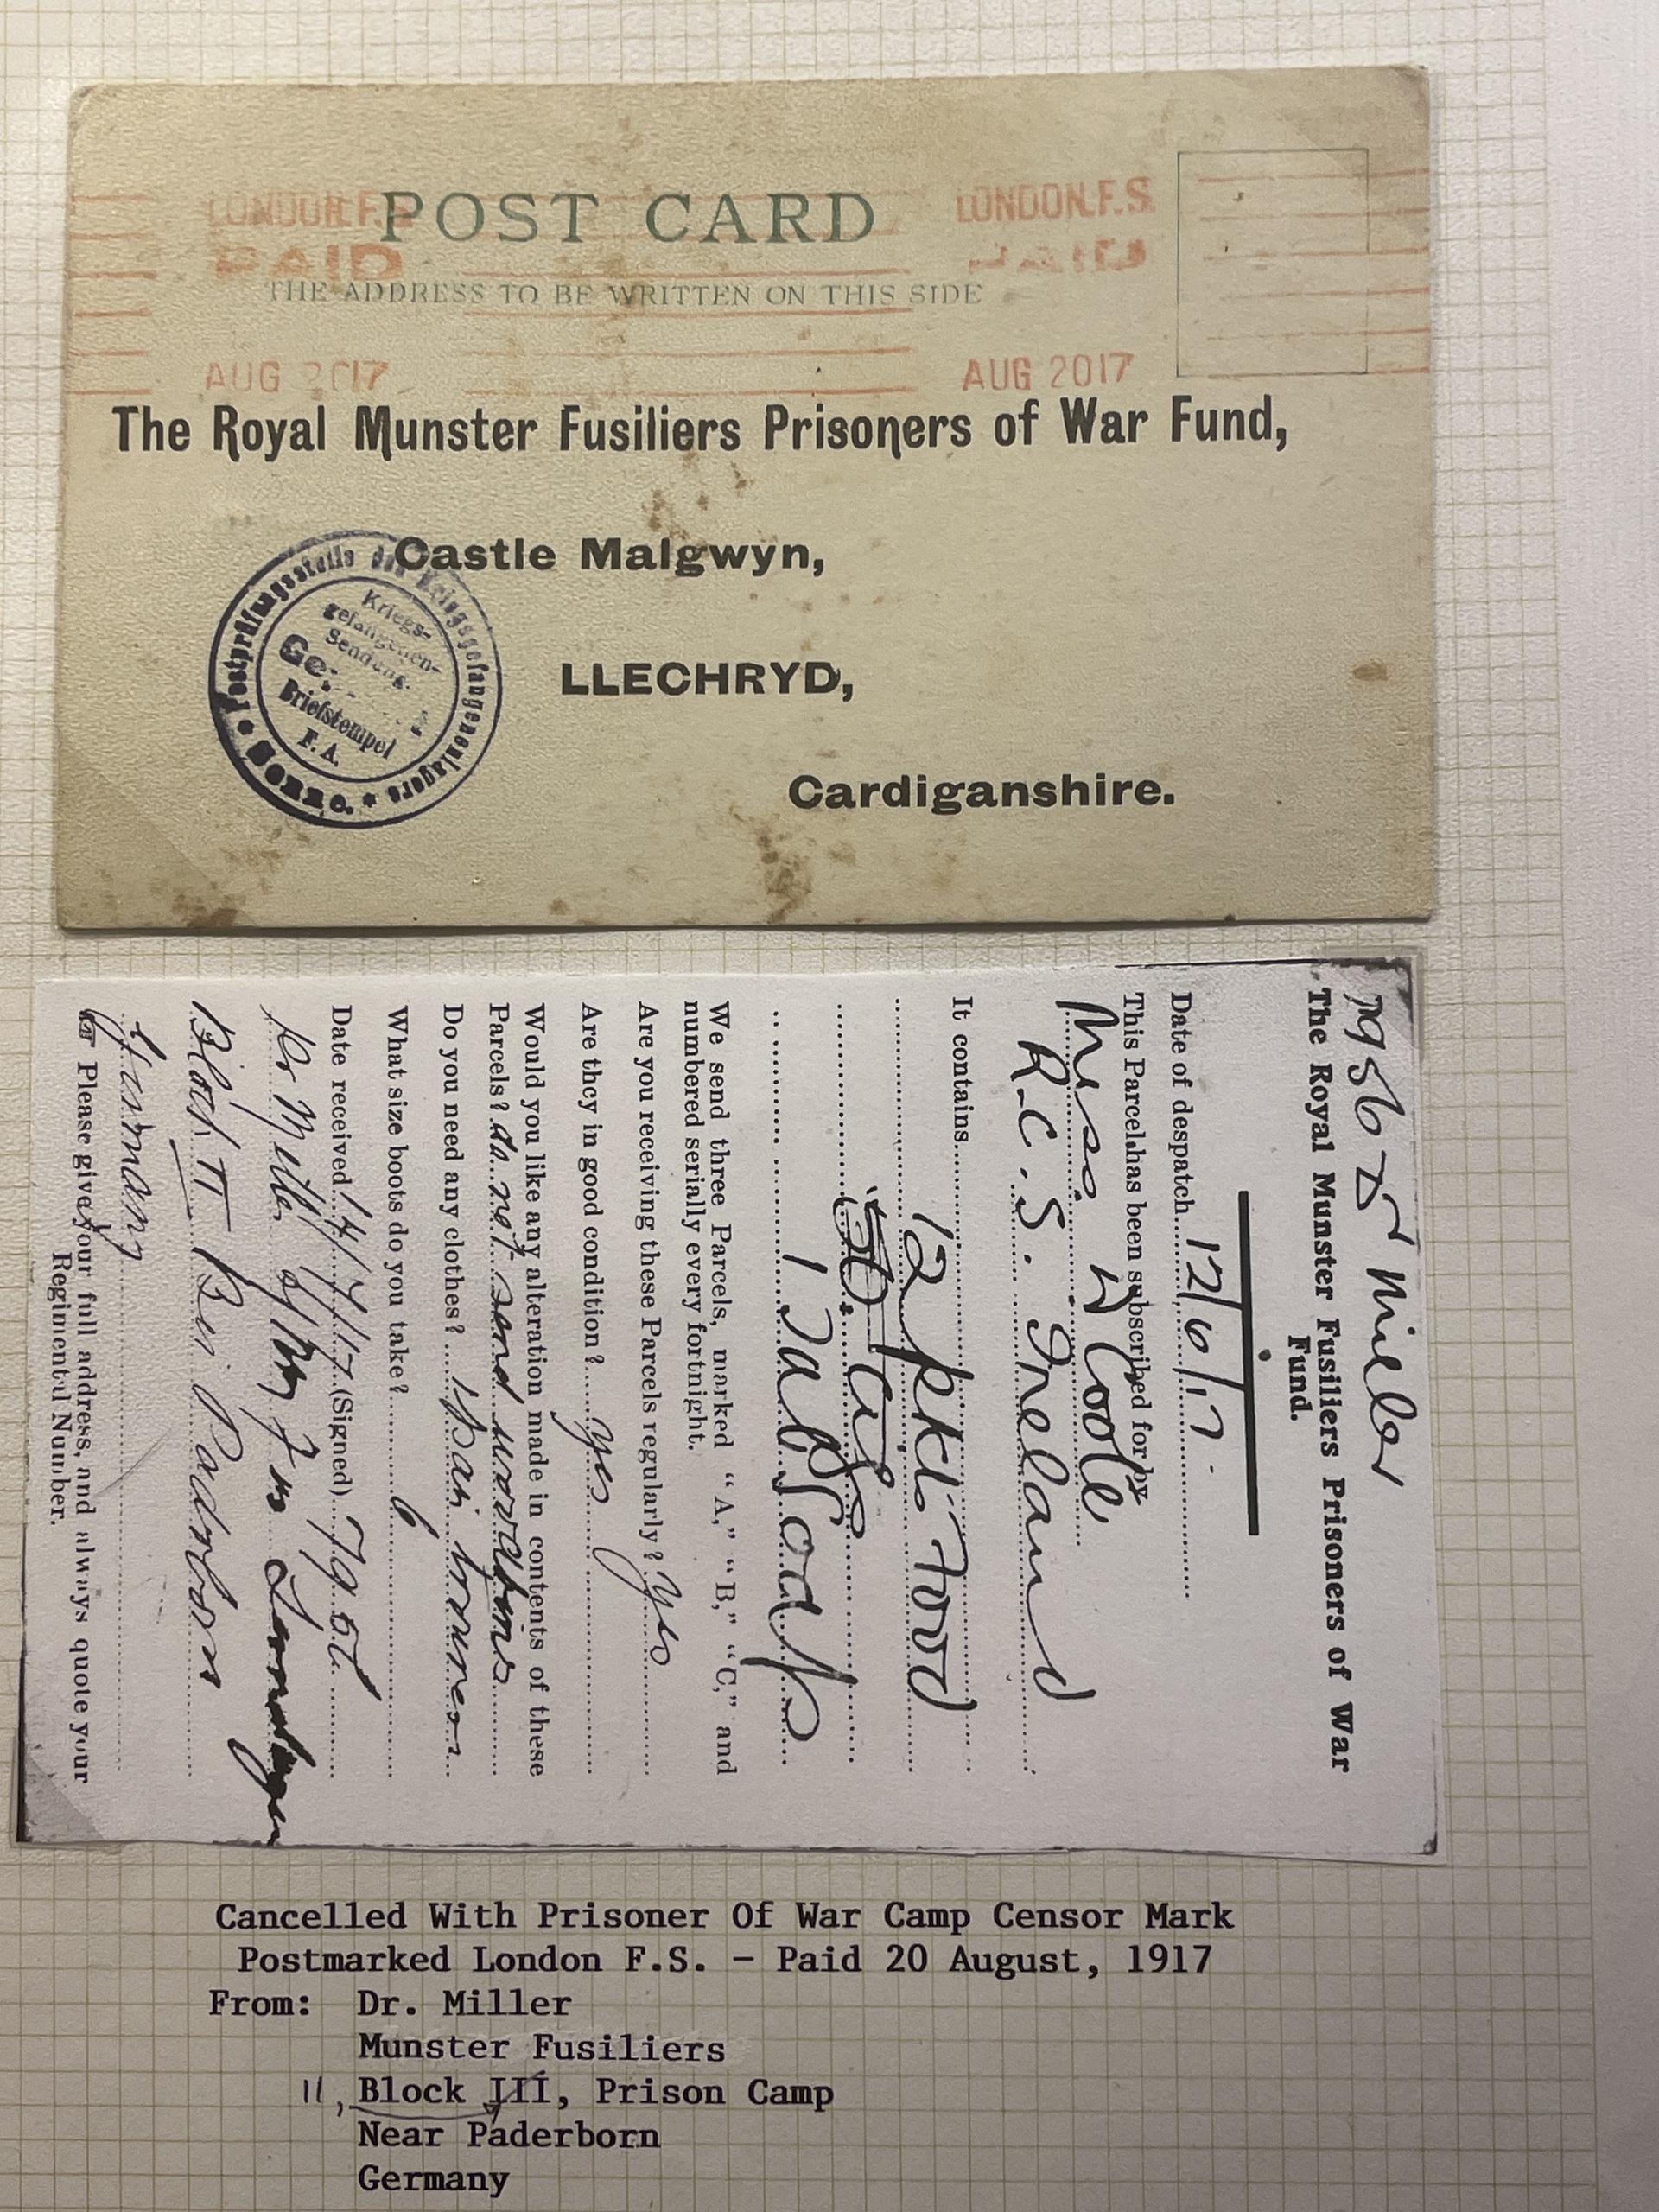 LONDON.F.S. LONDON.F.S.
PAID PAID
POST CARD
THE ADDRESS TO BE WRITTEN ON THIS SIDE
AUG 2017 AUG 2017
The Royal Munster Fusiliers Prisoners of War Fund,
Castle Malgwyn,
LLECHRYD,
Cardiganshire.
Postprüfungsstelle des Kriegsgefangenenlagers
Kriegs-
gefangenen-
Sendung.
Briefstempel
F. A.
7956 Miller
The Royal Munster Fusiliers Prisoners of War
Fund.
Date of despatch 12/6/17
This Parcel has been subscribed for by
Miss Coote
R.C.S. Ireland
It contains
12 pkt. Food
50 Cigs
1 Tab Soap
We send three Parcels, marked "A," "B," "C," and
numbered serially every fortnight.
Are you receiving these Parcels regularly? Yes
Are they in good condition? Yes
Would you like any alteration made in contents of these
Parcels? do not send
Do you need any clothes? 1 pair
What size boots do you take? 6
Date received 14/7/17 (Signed) 7956
Dr Miller
Block II Bei Padrborn
Germany
☞ Please give your full address, and always quote your
Regimental Number.
Cancelled With Prisoner Of War Camp Censor Mark
Postmarked London F.S. - Paid 20 August, 1917
From: Dr. Miller
Munster Fusiliers
11, Block III, Prison Camp
Near Paderborn
Germany